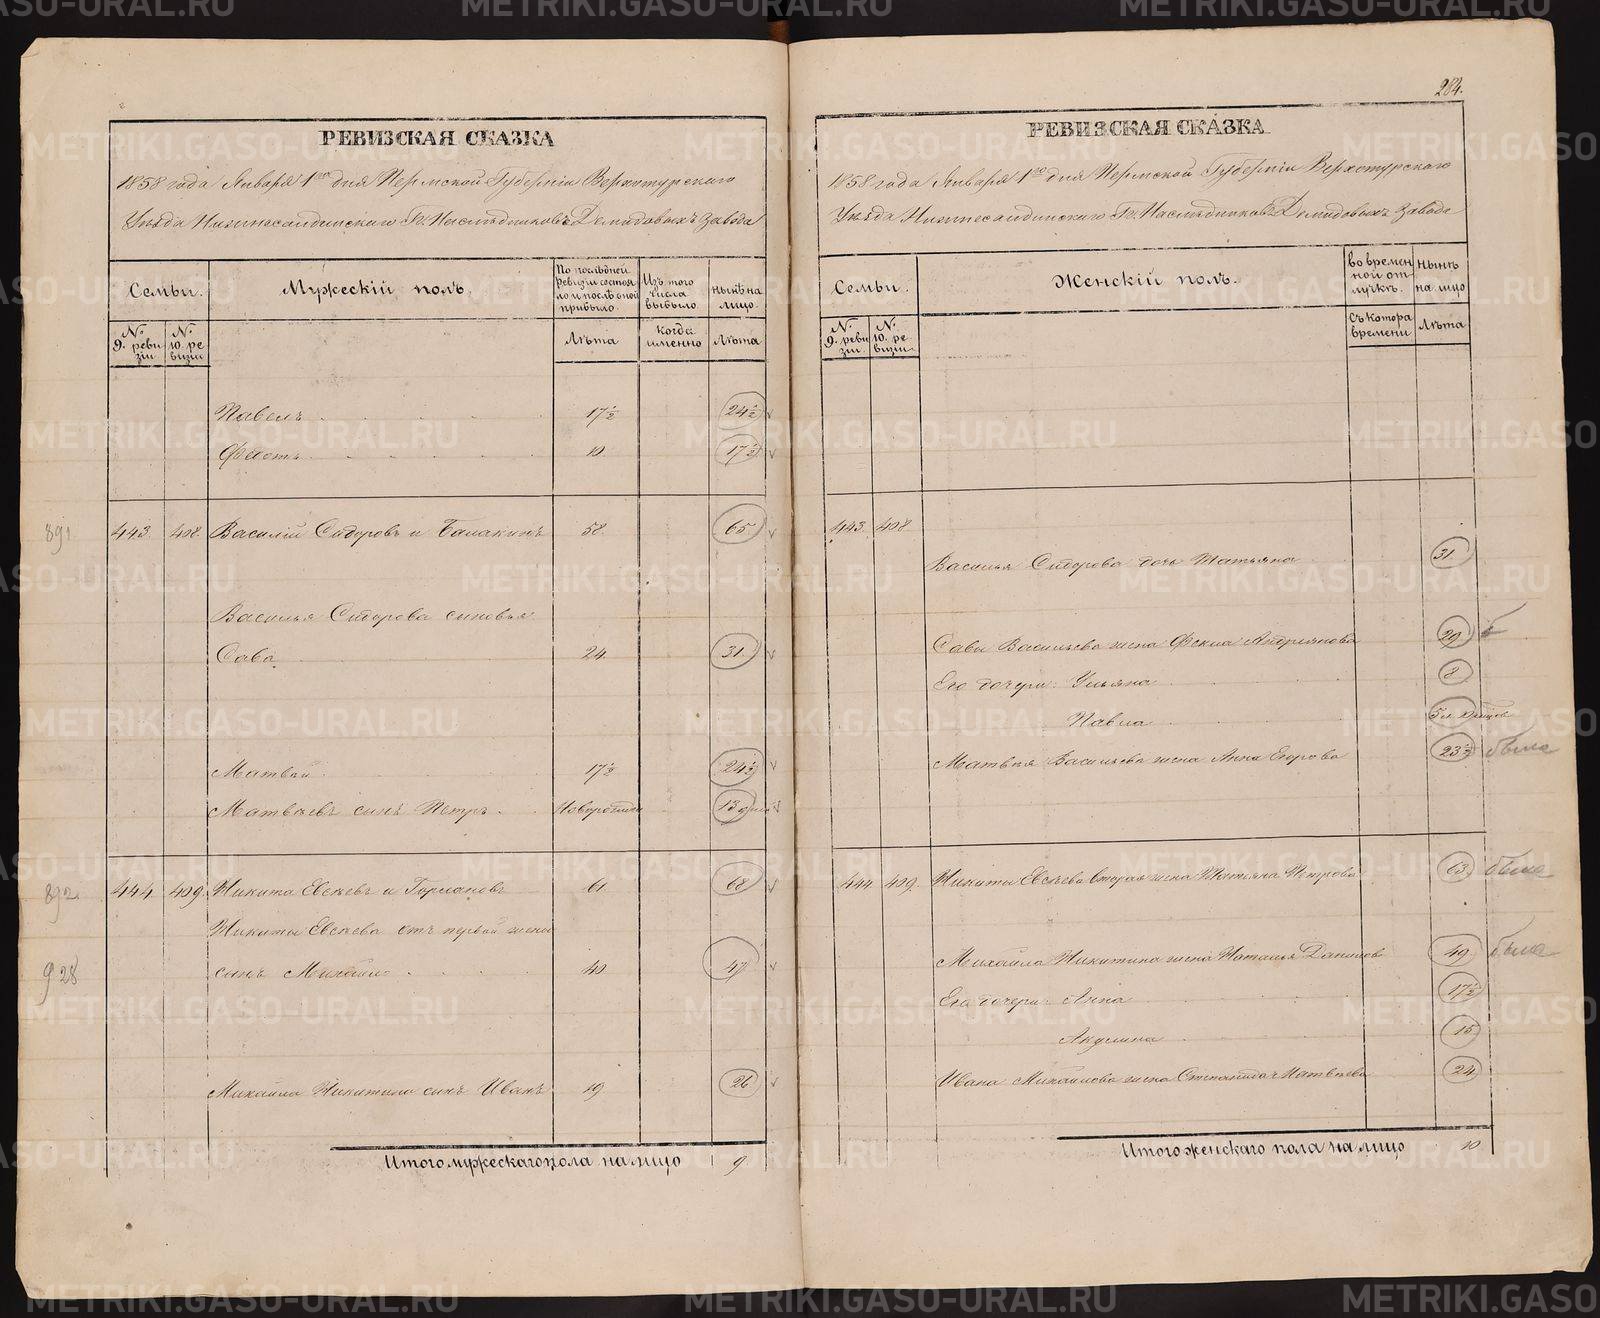 284.
РЕВИЗСКАЯ СКАЗКА
1858 года Января 1го дня Пермской Губерніи Верхотурскаго
Уѣзда Нижнесалдинскаго Гг. Наслѣдниковъ Демидовыхъ Завода
Семьи.
Мужескій полъ.
По послѣдней ревизіи состояло и послѣ оной прибыло.
Изъ того числа выбыло.
Нынѣ на лицо.
№ 9. ревизіи
№ 10. ревизіи
Лѣта
когда именно
Лѣта
Павелъ 17½ 24½
Фаотъ 10. 17½
891 443. 408. Василій Сидоровъ и Балакинъ 58. 65
Василья Сидорова сыновья
Сава 24. 31.
Матвей 17½ 24½
Матвѣевъ сынъ Петръ Новорожден 13 дней
892 444. 409. Никита Евсѣевъ и Гурьяновъ 61. 68
Никиты Евсѣева отъ первой жены
928 сынъ Михайло 40. 47
Михайла Никитина сынъ Иванъ 19. 26
Итого мужескаго пола на лицо 9
РЕВИЗСКАЯ СКАЗКА
1858 года Января 1го дня Пермской Губерніи Верхотурскаго
Уѣзда Нижнесалдинскаго Гг. Наслѣдниковъ Демидовыхъ Завода
Семьи.
Женскій полъ.
Во временной отлучкѣ.
Нынѣ на лицо
№ 9. ревизіи
№ 10. ревизіи.
Съ котора времени
Лѣта
443. 408.
Василья Сидорова дочь Татьяна 31.
Савы Васильева жена Фекла Андреянова 29
Его дочери: Ульяна 8
Павла 5
Матвея Васильева жена Анна Егорова 23½ была
444. 409. Никиты Евсѣева вторая жена Татьяна Петрова 63 была
Михайла Никитина жена Наталья Данилов 49. была
Его дочери: Анна 17½
Акулина 15
Ивана Михайлова жена Степанида Матвѣева 24
Итого женскаго пола на лицо 10
METRIKI.GASO-URAL.RU